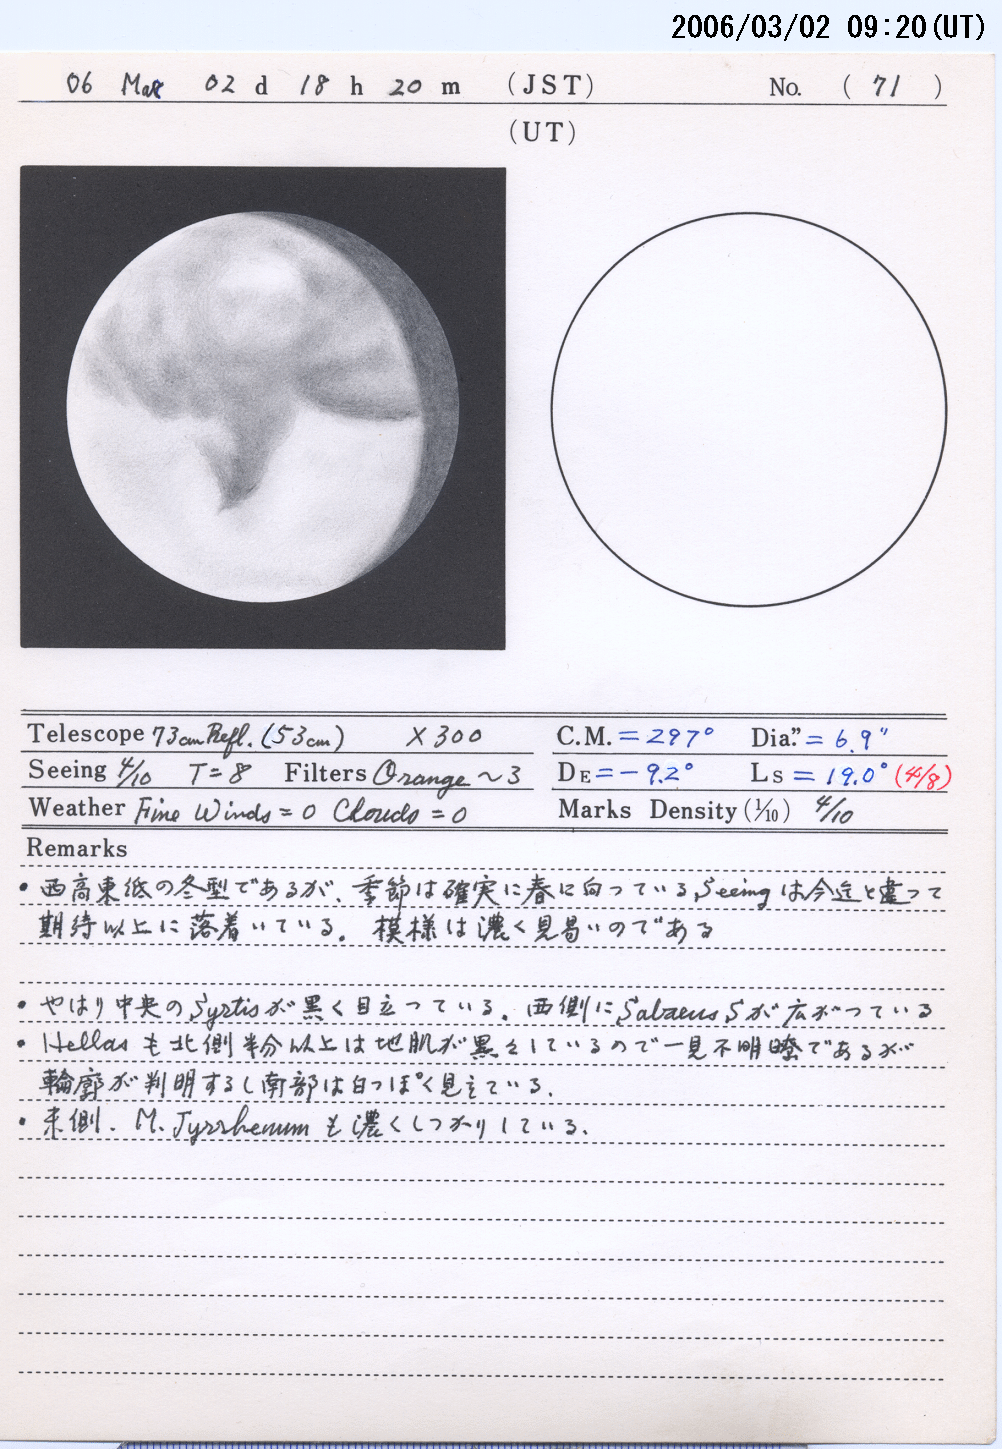 2006/03/02 09:20(UT)
06 Mar 02 d 18 h 20 m (JST) No. ( 71 )
(UT)
Telescope 73cm Refl. (53cm) ×300
C.M. = 297° Dia." = 6.9"
Seeing 4/10 T=8 Filters Orange ~3
DE = -9.2° Ls = 19.0° (4/8)
Weather Fine Winds=0 Clouds=0
Marks Density (1/10) 4/10
Remarks
・西高東低の冬型であるが、季節は確実に春に向っている。Seeingは今迄と違って
期待以上に落着いている。模様は濃く見易いのである
・やはり中央のSyrtisが黒く目立っている。西側にSabaeus Sが広がっている
・Hellasも北側半分以上は地肌が黒々しているので一見不明瞭であるが
輪廓が判明するし南部は白っぽく見えている。
・東側、M. Tyrrhenumも濃くしっかりしている。